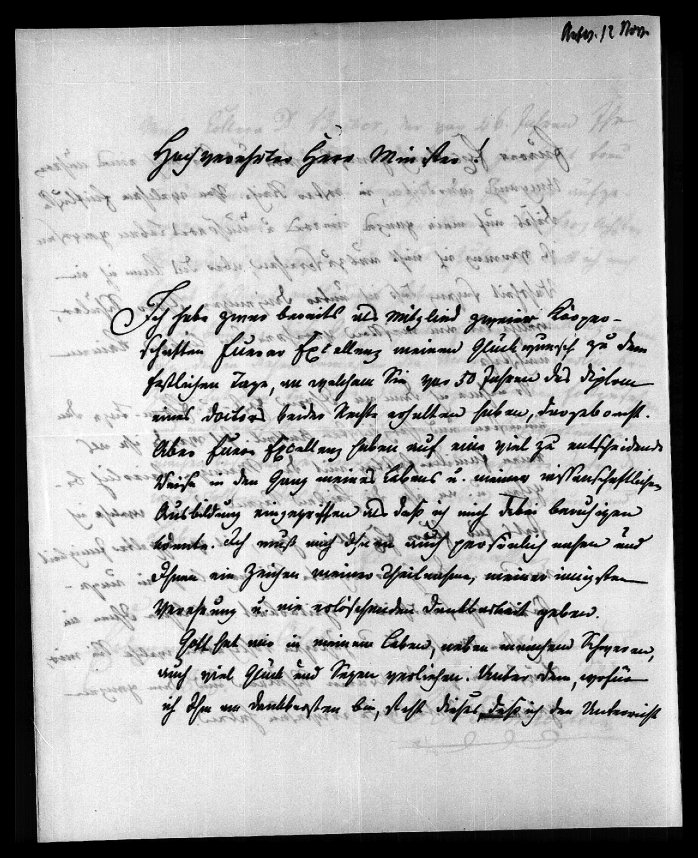 Antw. 12 Nov.
Hochverehrter Herr Minister!
Ich habe zwar bereits als Mitglied zweier Körper-
schaften Eurer Excellenz meinen Glückwunsch zu dem
festlichen Tage, an welchem Sie vor 50 Jahren das Diplom
eines Doctors beider Rechte erhalten haben, dargebracht.
Aber Eure Excellenz haben auf eine viel zu entscheidende
Weise in den Gang meines Lebens u. meiner wissenschaftlichen
Ausbildung eingegriffen als daß ich mich dabei beruhigen
könnte. Ich muß mich Ihnen auch persönlich nahen und
Ihnen ein Zeichen meiner Theilnahme, meiner innigsten
Verehrung u. nie erlöschenden Dankbarkeit geben.
Gott hat mir in meinem Leben, neben manchem Schweren,
auch viel Glück und Segen verliehen. Unter dem, wofür
ich Ihm am dankbarsten bin, steht dieses, daß ich den Unterricht